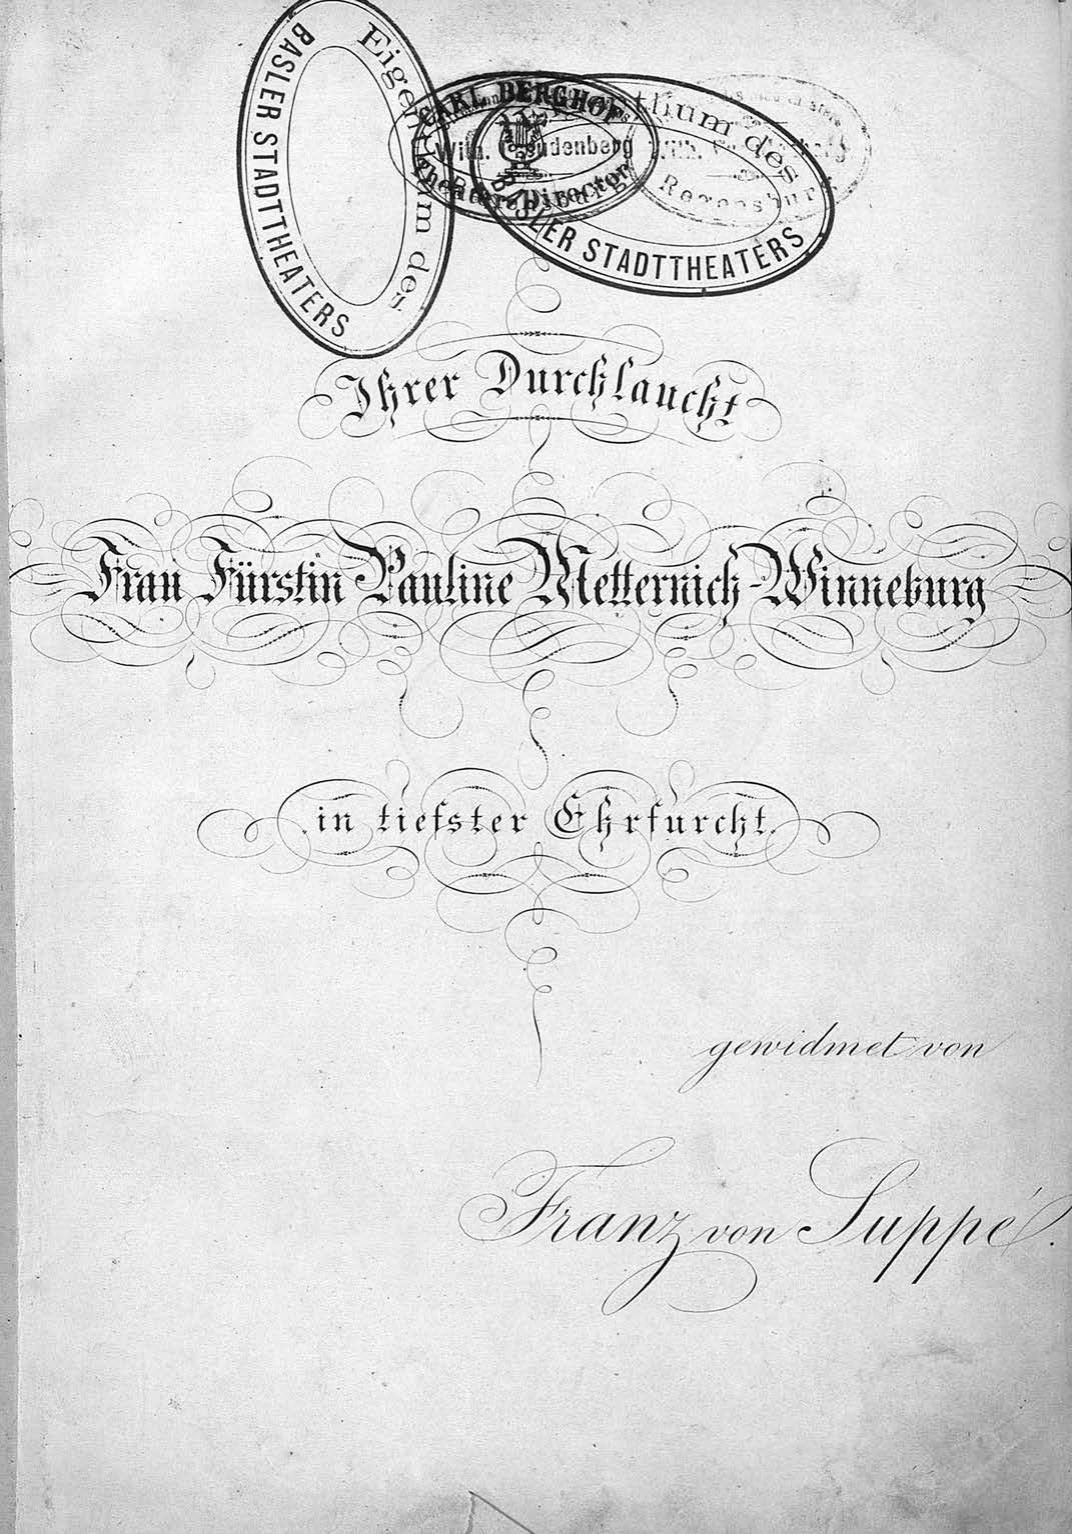 Eigenthum des
BASLER STADTTHEATERS
CARL BERGHOF
Theater-Director
Wilh. Freudenberg
Regensburg
Eigenthum des
BASLER STADTTHEATERS
Wilh.
Regensburg
Ihrer Durchlaucht
Frau Fürstin Pauline Metternich-Winneburg
in tiefster Ehrfurcht.
gewidmet von
Franz von Suppé.